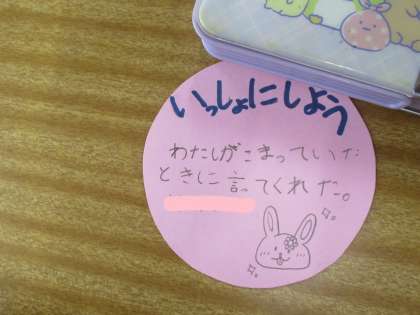 いっしょにしよう
わたしがこまっていた
ときに言ってくれた。